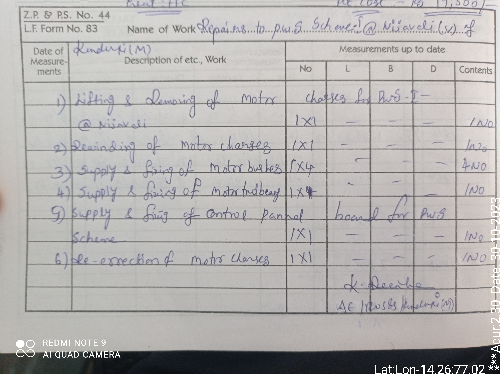 Z.P. & P.S. No. 44
L.F. Form No. 83
Name of Work Repairs to PWS Scheme I @ Nijavali (V) of
Kunduru (M)
Date of Measure- ments
Description of etc., Work
Measurements up to date
No L B D Contents
1) Lifting & Removing of Motor charges for PWS-I-
@ Nijavali 1X1 – – – 1No
2) Rewinding of Motor charges 1X1 – – – 1No
3) Supply & fixing of Motor bushes 1X4 – – – 4No
4) Supply & fixing of Motor 1X – – 1No
5) Supply & fixing of Control Pannal board for PWS
Scheme 1X1 – – – 1No
6) Re-errection of motor charges 1X1 – – – 1No
REDMI NOTE 9
AI QUAD CAMERA
Date 30-10-2023
Lat:Lon-14.26:77.02